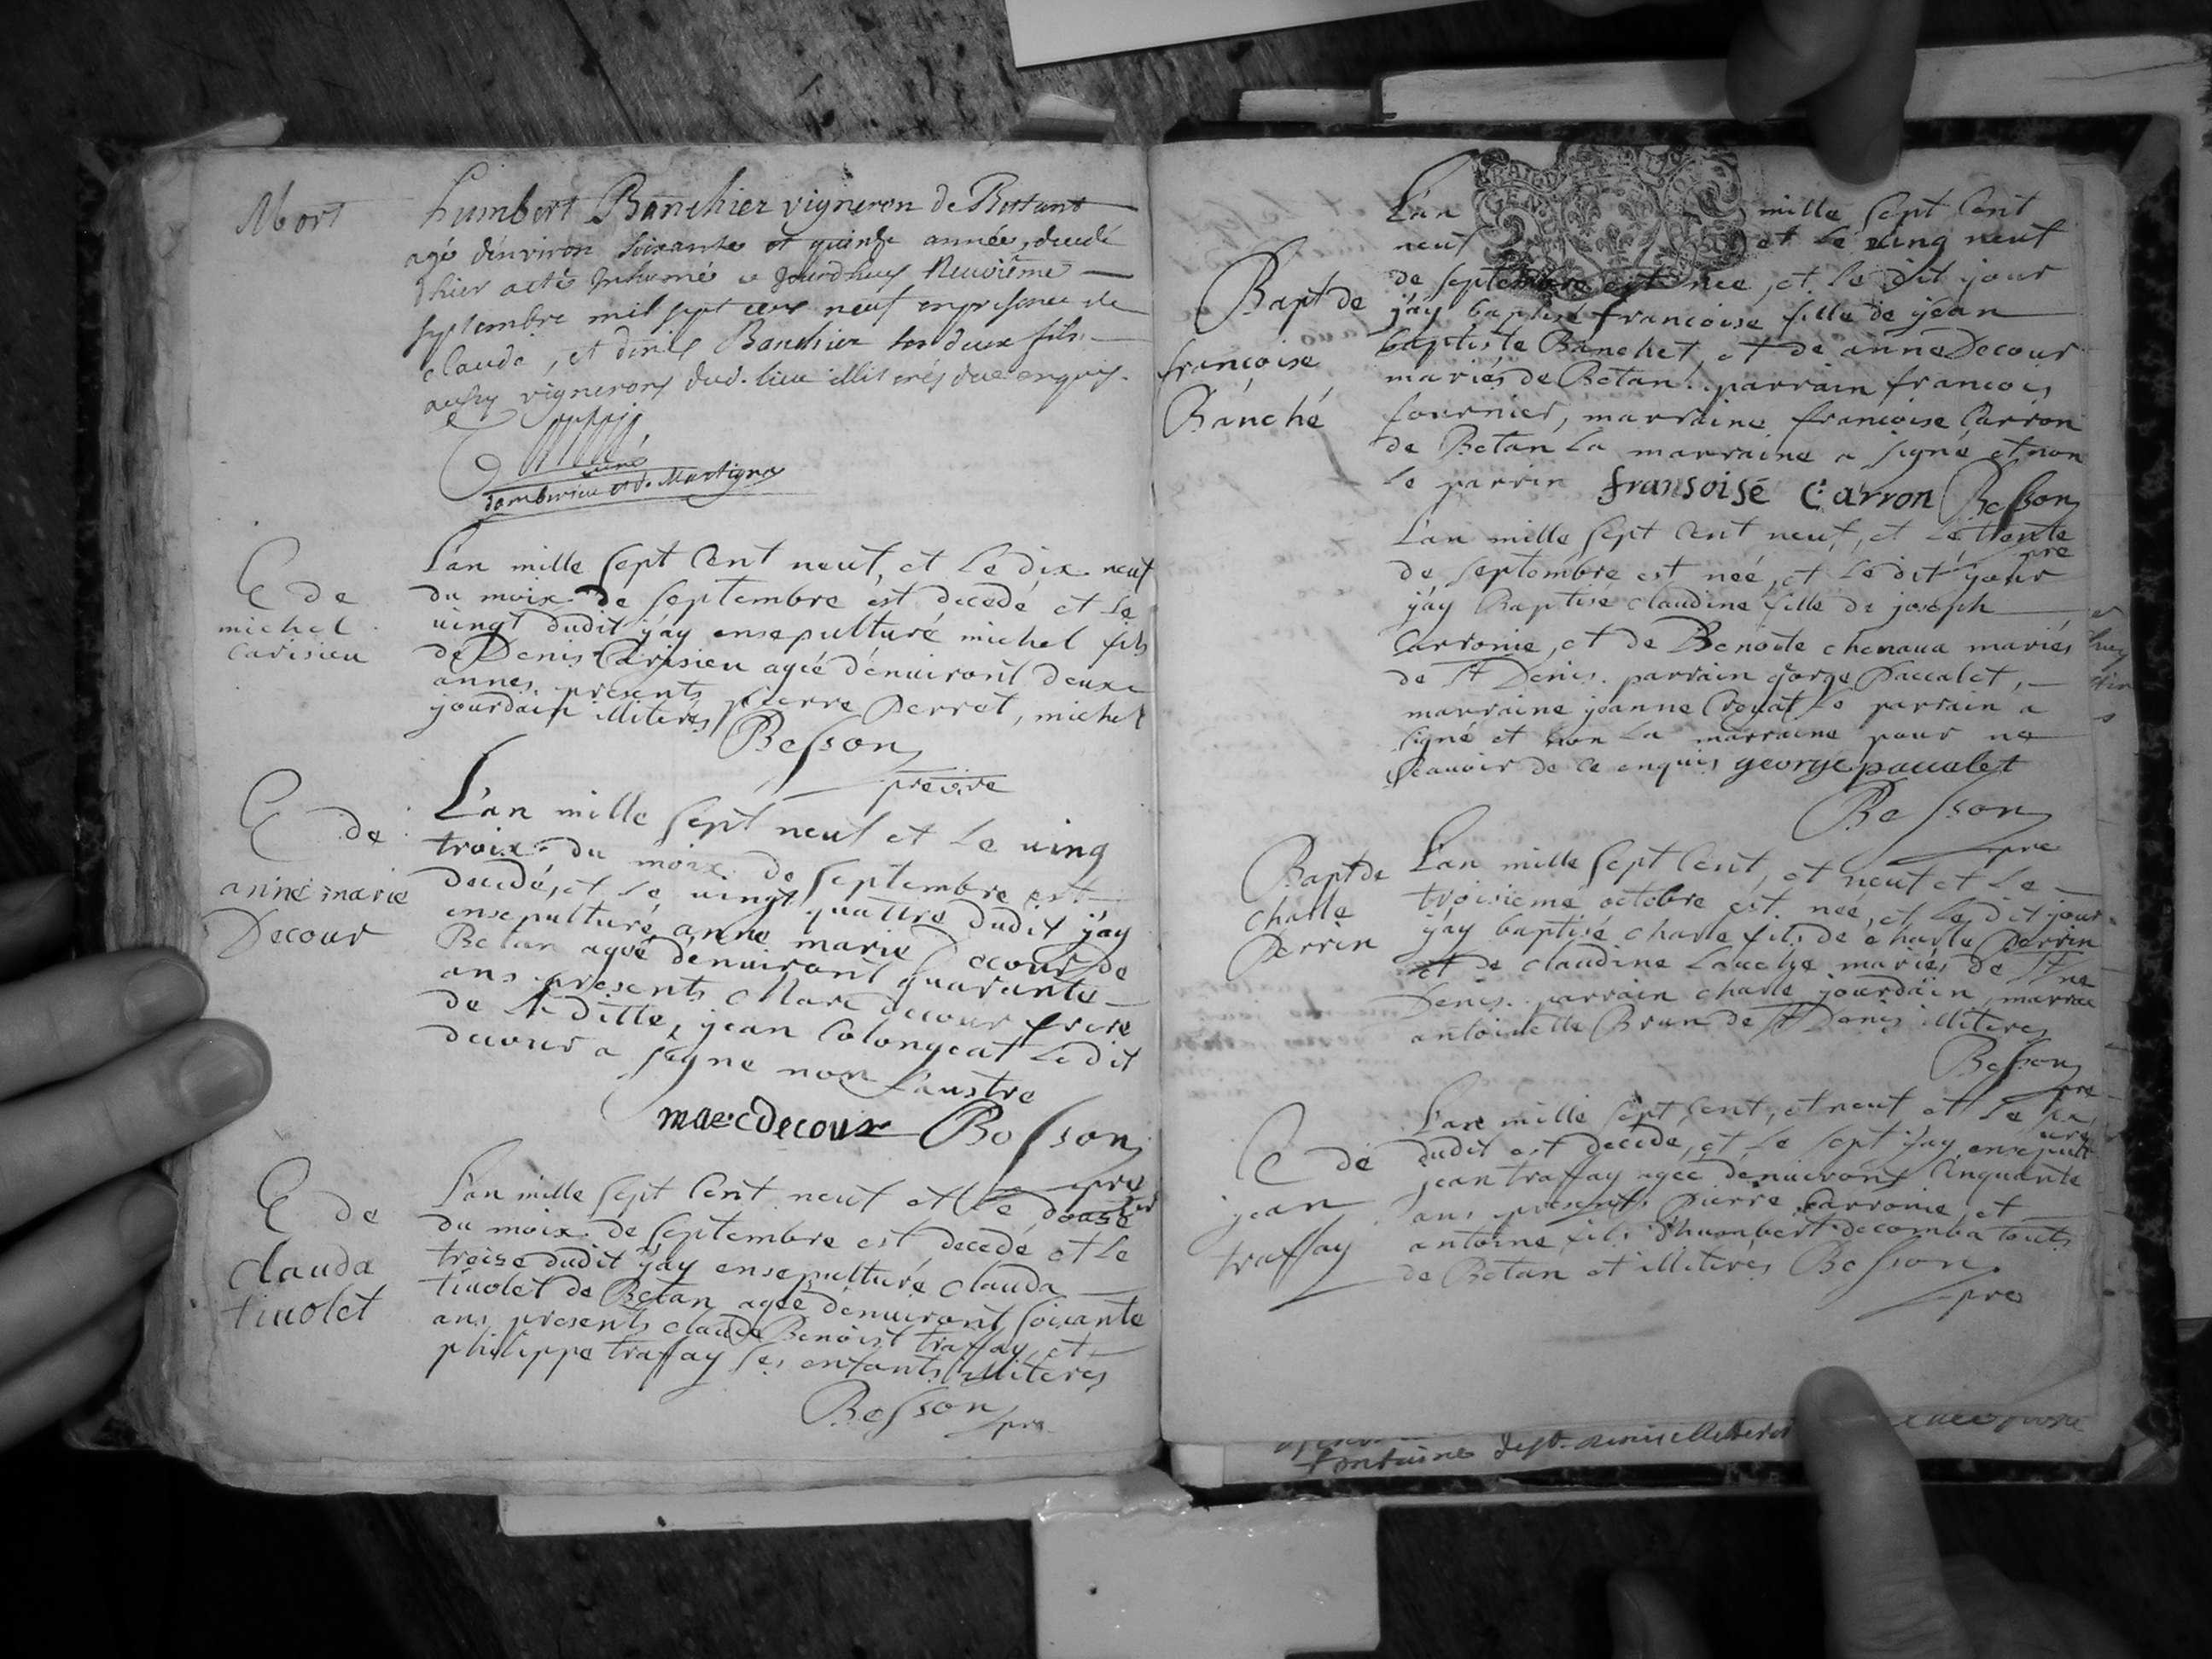 Mort
humbert Banchier vigneron de Bettant
agé denviron soixante et quinze année, decedé
hier a eté Inhumé ce jourdhuy Neuvième
septembre mil sept cens neuf en presence de
claude, et denis Banchier ses deux fils
aussy vignerons dud. lieu illiterés de ce enquis.
curé
dambericu et de Martigna
E de
michel
Carisieu
L'an mille sept Cent neuf, et Le dix neuf
du moix de septembre est decedé et Le
uingt dudit j'ay ensepulturé michel fils
de Denis Carisieu ageé d'enuiront deux
annes presents pierre perret, michel
jourdain illiterés
Besson
prestre
E de
anne marie
Decour
L'an mille sept neuf et Le uing
troix du moix de septembre est
decedé, et Le uingt quattre dudit j'ay
ensepulturé anne marie Decour de
Betan ageé denuiront quarante
ans presents Marc decour frere
de Laditte, jean Colongeat Ledit
decour a signe non L'austre
marc decour Besson
pre
E de
clauda
tiuolet
L'an mille sept Cent neuf et Le douse
du moix de septembre est decedé et Le
treise dudit j'ay ensepulturé clauda
tiuolet de Betan ageé d'enuiront soixante
ans presents claude Benoist traffay et
philippe traffay ses enfants illiterés
Besson
pre
Bapt de
françoise
Banché
L'an mille sept Cent
neuf et Le uing neuf
de septembre est née, et Le dit jour
j'ay baptisé françoise fille de jean
baptiste Banchet, et de anne Decour
mariés de Betan. parrain françois
fournier, marraine françoise Carron
de Betan La marraine a signé et non
Le parrin fransoise Carron Besson
pre
L'an mille sept Cent neuf, et Le trente
de septembre est neé, et Le dit jour
j'ay Baptisé claudine fille de joseph
Carronie, et de Benoite chenaua mariés
de St Denis. parrain george paccalet,
marraine jeanne Croyat Le parrain a
signé et non La marraine pour ne
scauoir de ce enquis george paccalet
Besson
pre
Bapt de
charle
perrin
L'an mille sept Cent, et neuf et Le
troisieme octobre est neé, et Le dit jour
j'ay baptisé charle fils de charle perrin
et de claudine Louche mariés de St
Denis. parrain charle jourdain, marraine
antoinette Brun de St Denis illiteres
Besson
pre
E de
jean
traffay
L'an mille sept Cent, et neuf et Le six
dudit est decedé, et Le sept j'ay ensepulturé
jean traffay ageé denuiront Cinquante
ans presents pierre Carronie, et
antoine fils d'humbert decomba touts
de Betan et illiterés Besson
pre